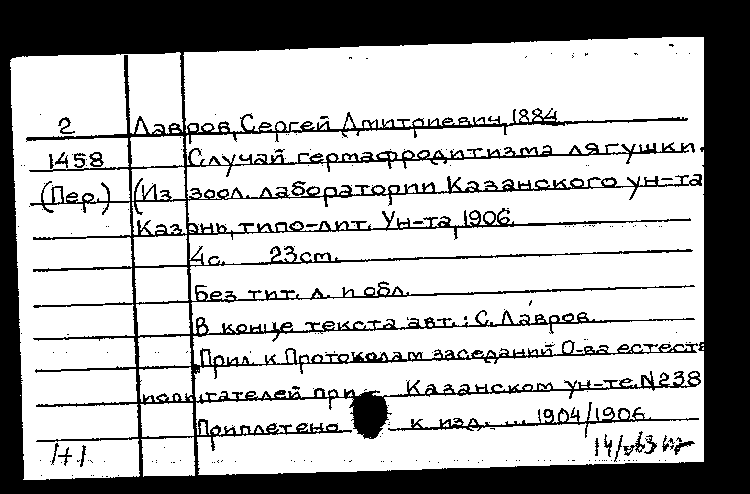 2 Лавров, Сергей Дмитриевич, 1884
1458 Случай гермафродитизма лягушки.
(Пер.) (Из зоол. лаборатории Казанского ун-та
Казань, типо-лит. Ун-та, 1906.
4с. 23см.
Без тит. л. и обл.
В конце текста авт.: С. Лавров.
Прил. к Протоколам заседаний О-ва естеств
испытателей при Казанском ун-те. N238
Приплетено к изд. ... 1904/1906.
1+1